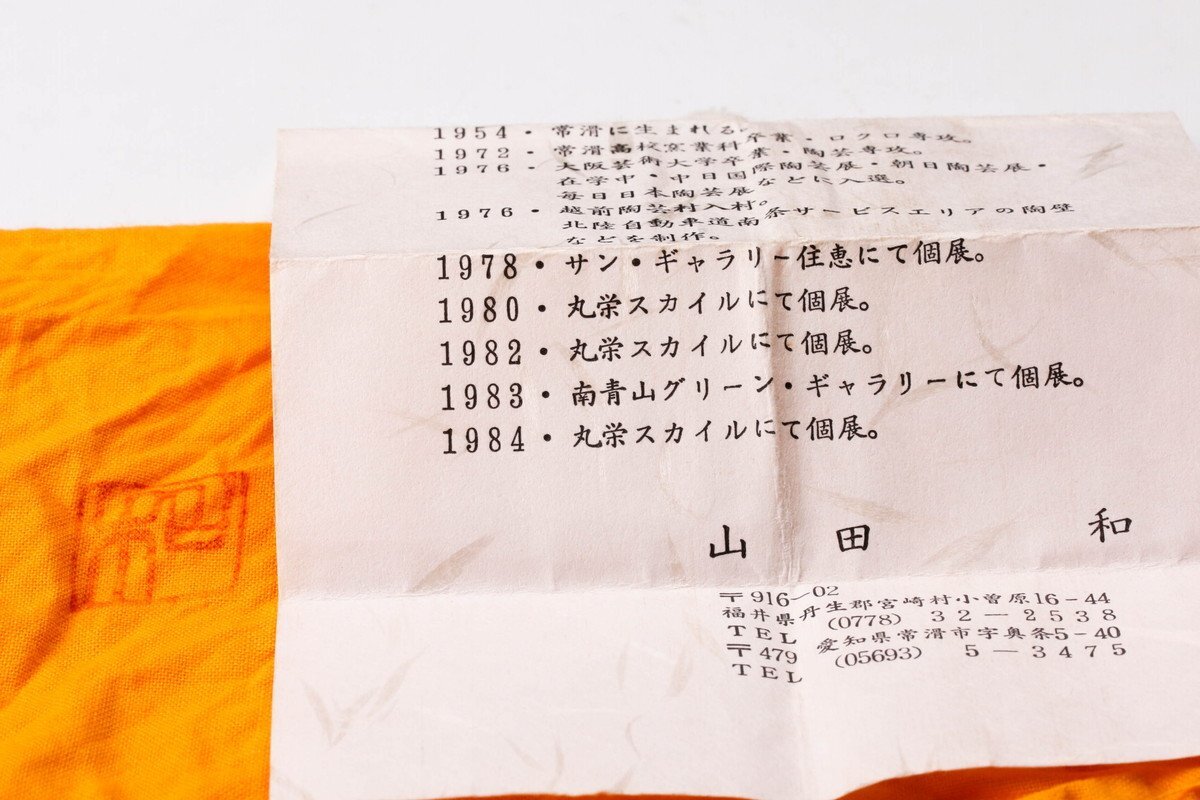 1954・常滑に生まれる。
1972・常滑高校窯業科卒業・ロクロ専攻。
1976・大阪芸術大学卒業・陶芸専攻。
在学中・中日国際陶芸展・朝日陶芸展・
毎日日本陶芸展などに入選。
1976・越前陶芸村入村。
北陸自動車道南条サービスエリアの陶壁
などを制作。
1978・サン・ギャラリー住恵にて個展。
1980・丸栄スカイルにて個展。
1982・丸栄スカイルにて個展。
1983・南青山グリーン・ギャラリーにて個展。
1984・丸栄スカイルにて個展。
山田 和
〒916-02
福井県丹生郡宮崎村小曽原16-44
TEL (0778) 32-2538
〒479 愛知県常滑市字奥条5-40
TEL (05693) 5-3475